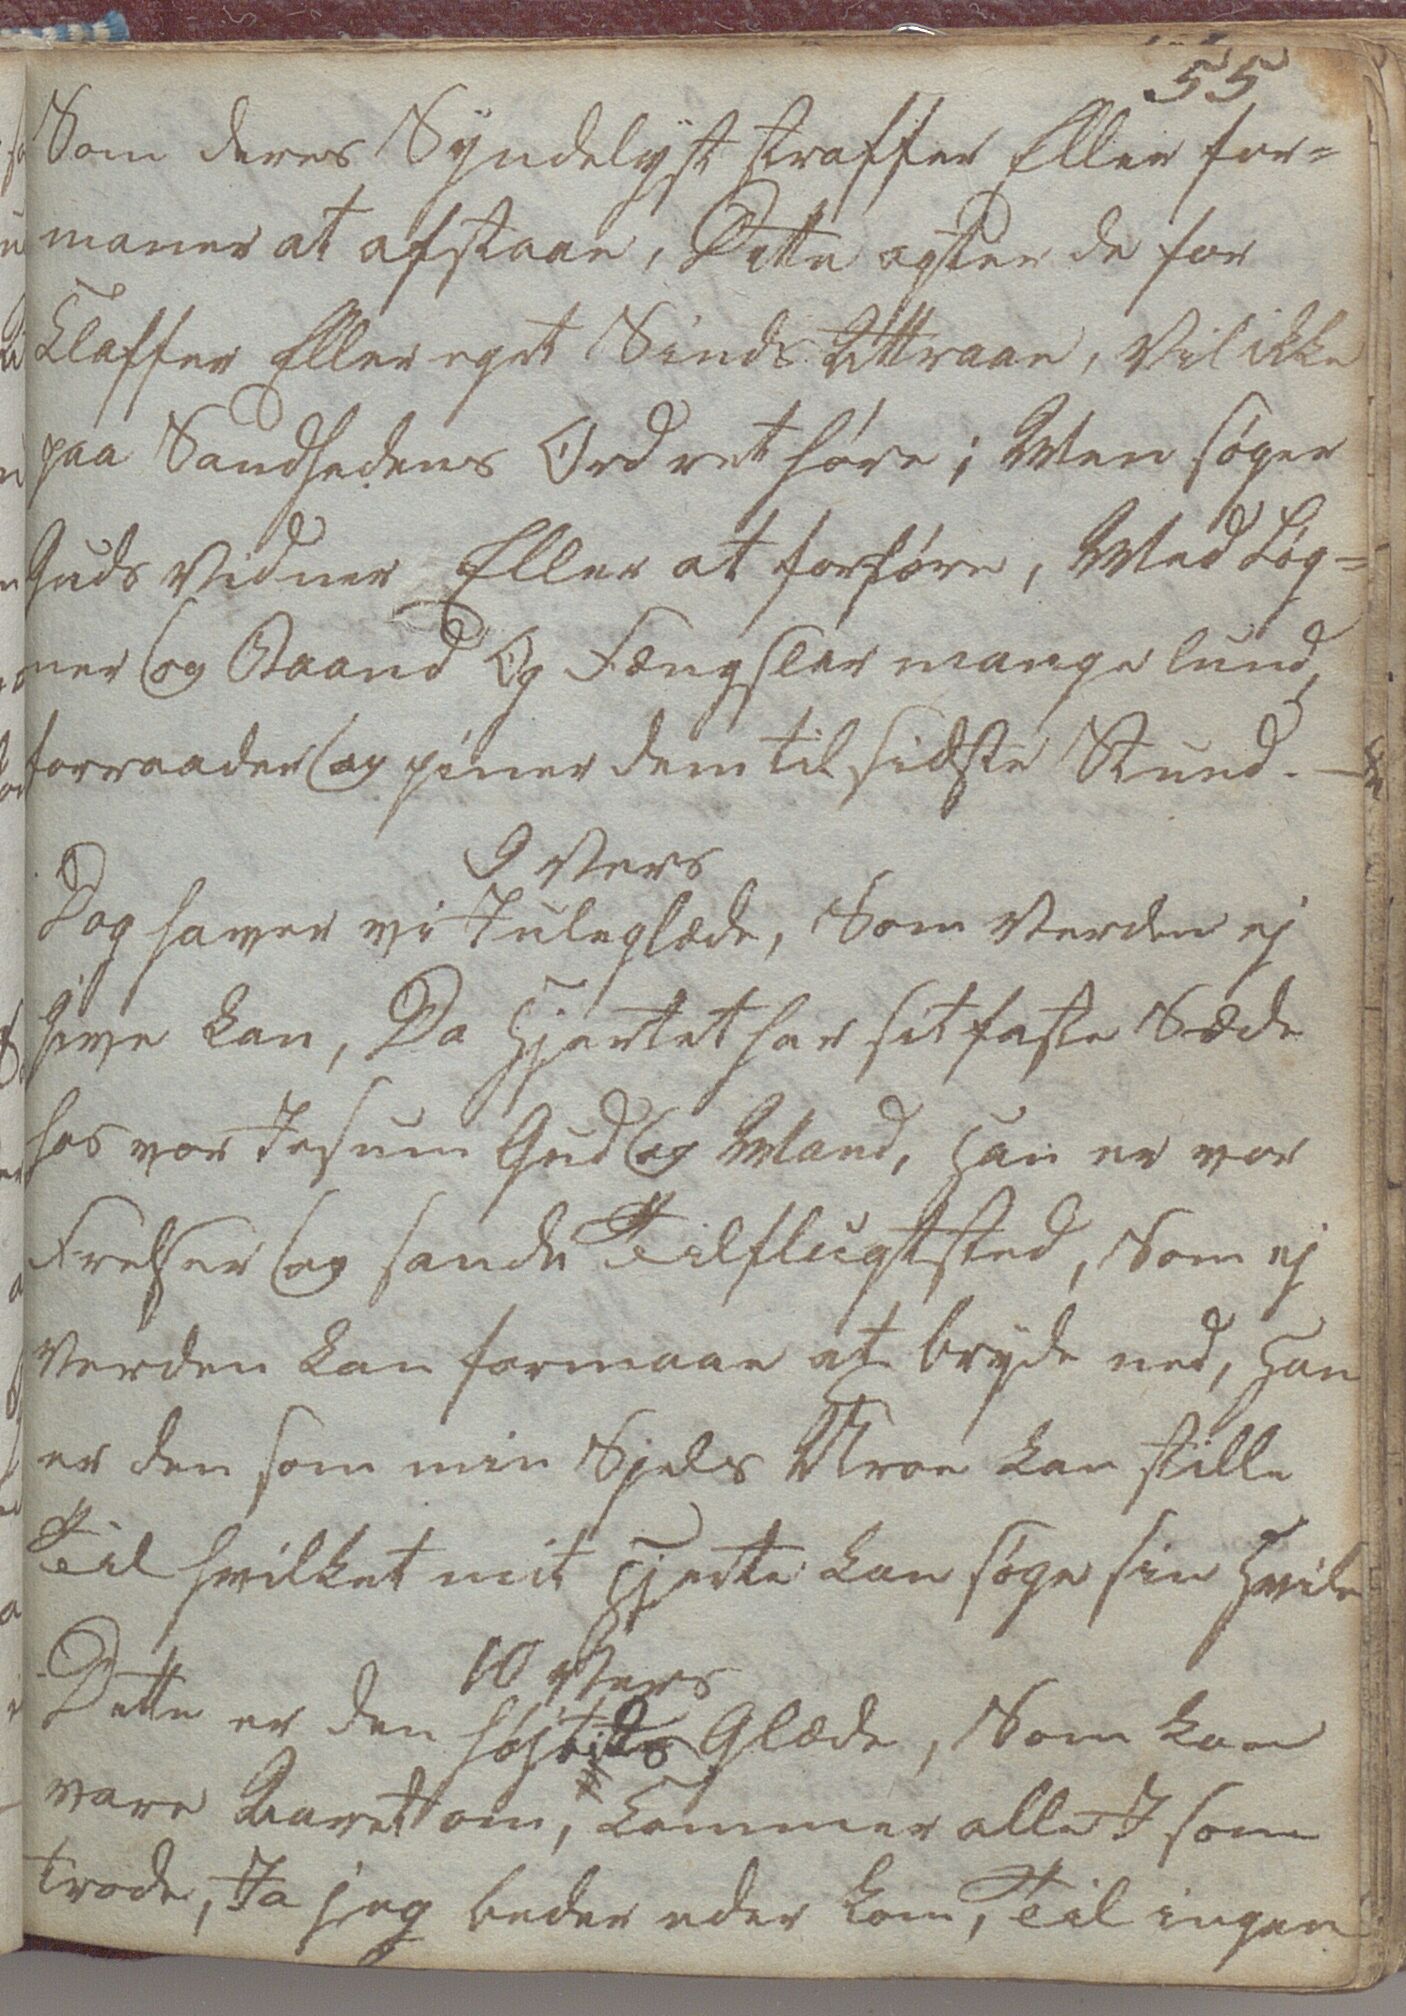 55
Som deres Syndelyst straffer Eller for=
maner at afstaae, Dette agter de for
Klaffer Eller eget Sinds Attraae, Vil ikke
paa Sandhedens Ord ret høre; Men søger
Guds Vidner Eller at forføre, Med Løg=
ner og Baand Og Fængsler mange lund,
forraader og piner dem til sidste Stund. —
9 Vers
Dog haver vi Juleglæde, Som Verden ej
give kan, Da Hjertet har sit faste Sæde
hos vor Jesum Gud og Mand, Han er vor
Frelser og sande Tilflugtsted, Som ej
Verden kan formaae at bryde ned, Han
er den som min Sjels Uroe kan stille
Til hvilket mit Hjerte kan søge sin Hvile
10 Vers
Dette er den højtids Glæde, Som kan
vare Aaret om, Kommer alle I som
træde, Ja jeg beder eder kom, Til ingen